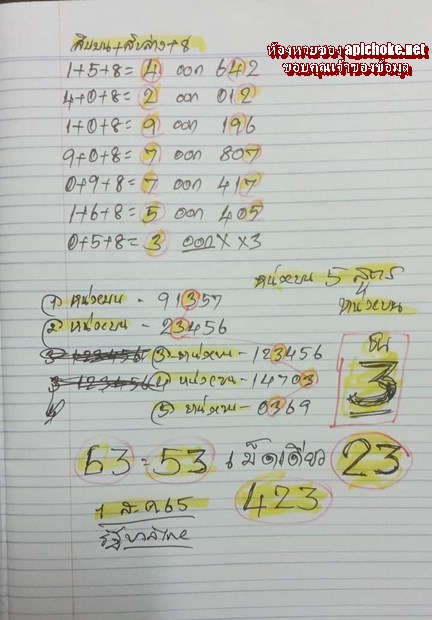 สิบบน+สิบล่าง+8
ห้องหวยซอง apichoke.net
ขอบคุณเจ้าของข้อมูล
1+5+8=4 ออก 642
4+0+8=2 ออก 012
1+0+8=9 ออก 196
9+0+8=7 ออก 807
0+9+8=7 ออก 417
1+6+8=5 ออก 405
0+5+8=3 ออก XX3
หน่วยบน 5 สูตร
หน่วยบน
① หน่วยบน - 91357
② หน่วยบน - 23456
③ หน่วยบน - 123456
④ หน่วยบน - 14703
⑤ หน่วยบน - 0369
3
63 = 53 เม็ดเดียว 23
423
1 ส.ค 65